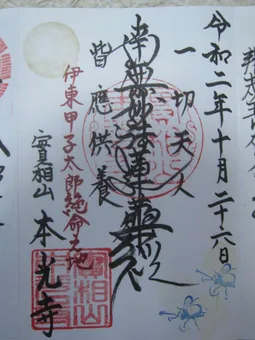 令和二年十月二十六日
一切天人
南無妙法蓮華経
皆應供養
伊東甲子太郎絶命之地
實相山 本光寺